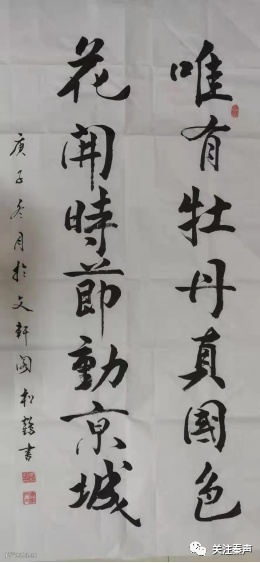 唯有牡丹真國色
花開時節動京城
庚子冬月於文軒閣松鶴書
关注秦声